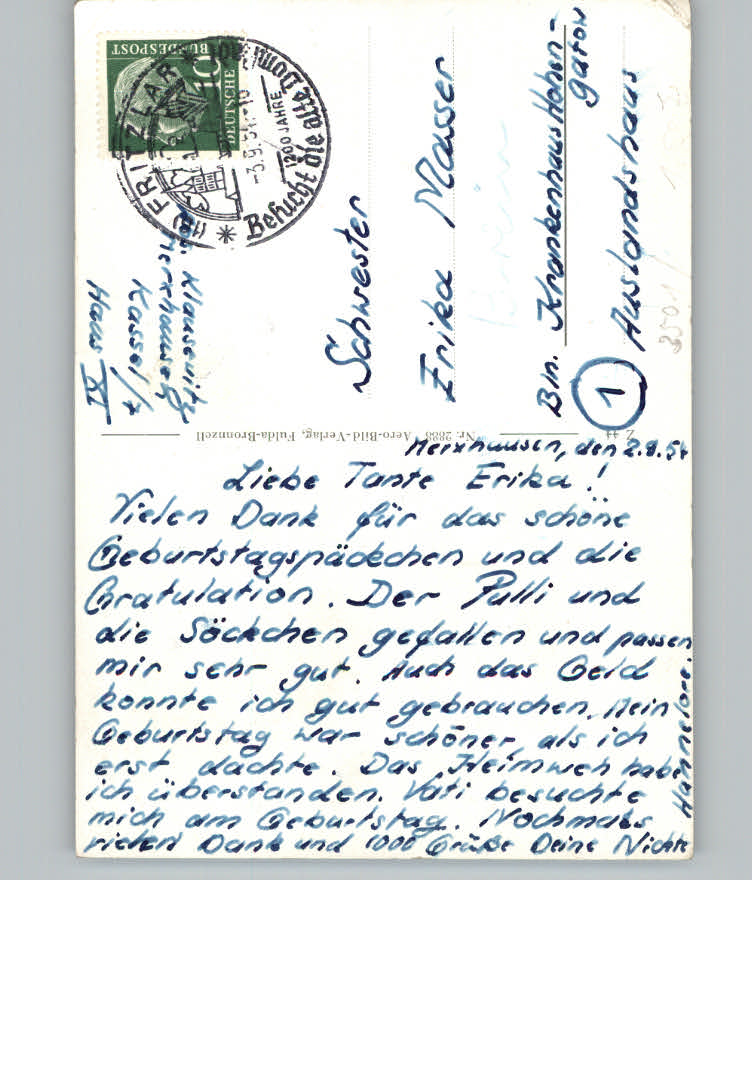 DEUTSCHE
BUNDESPOST
10
FRITZLAR
1200 JAHRE
Besucht die alte
-3.9.54
Klausewitz
Merxhausen
Kassel/7
Haus XI
Schwester
Erika Masser
Bln. Krankenhaus Hohen-
gatow
1
Auslandshaus
Nr. 2888 Aero-Bild-Verlag, Fulda-Bronnzell
Merxhausen, den 2.9.54
Liebe Tante Erika!
Vielen Dank für das schöne
Geburtstagspäckchen und die
Gratulation. Der Pulli und
die Söckchen gefallen und passen
mir sehr gut. Auch das Geld
konnte ich gut gebrauchen. Mein
Geburtstag war schöner, als ich
erst dachte. Das Heimweh habe
ich überstanden. Vati besuchte
mich am Geburtstag. Nochmals
vielen Dank und 1000 Grüße Deine Nichte
Hannelore.